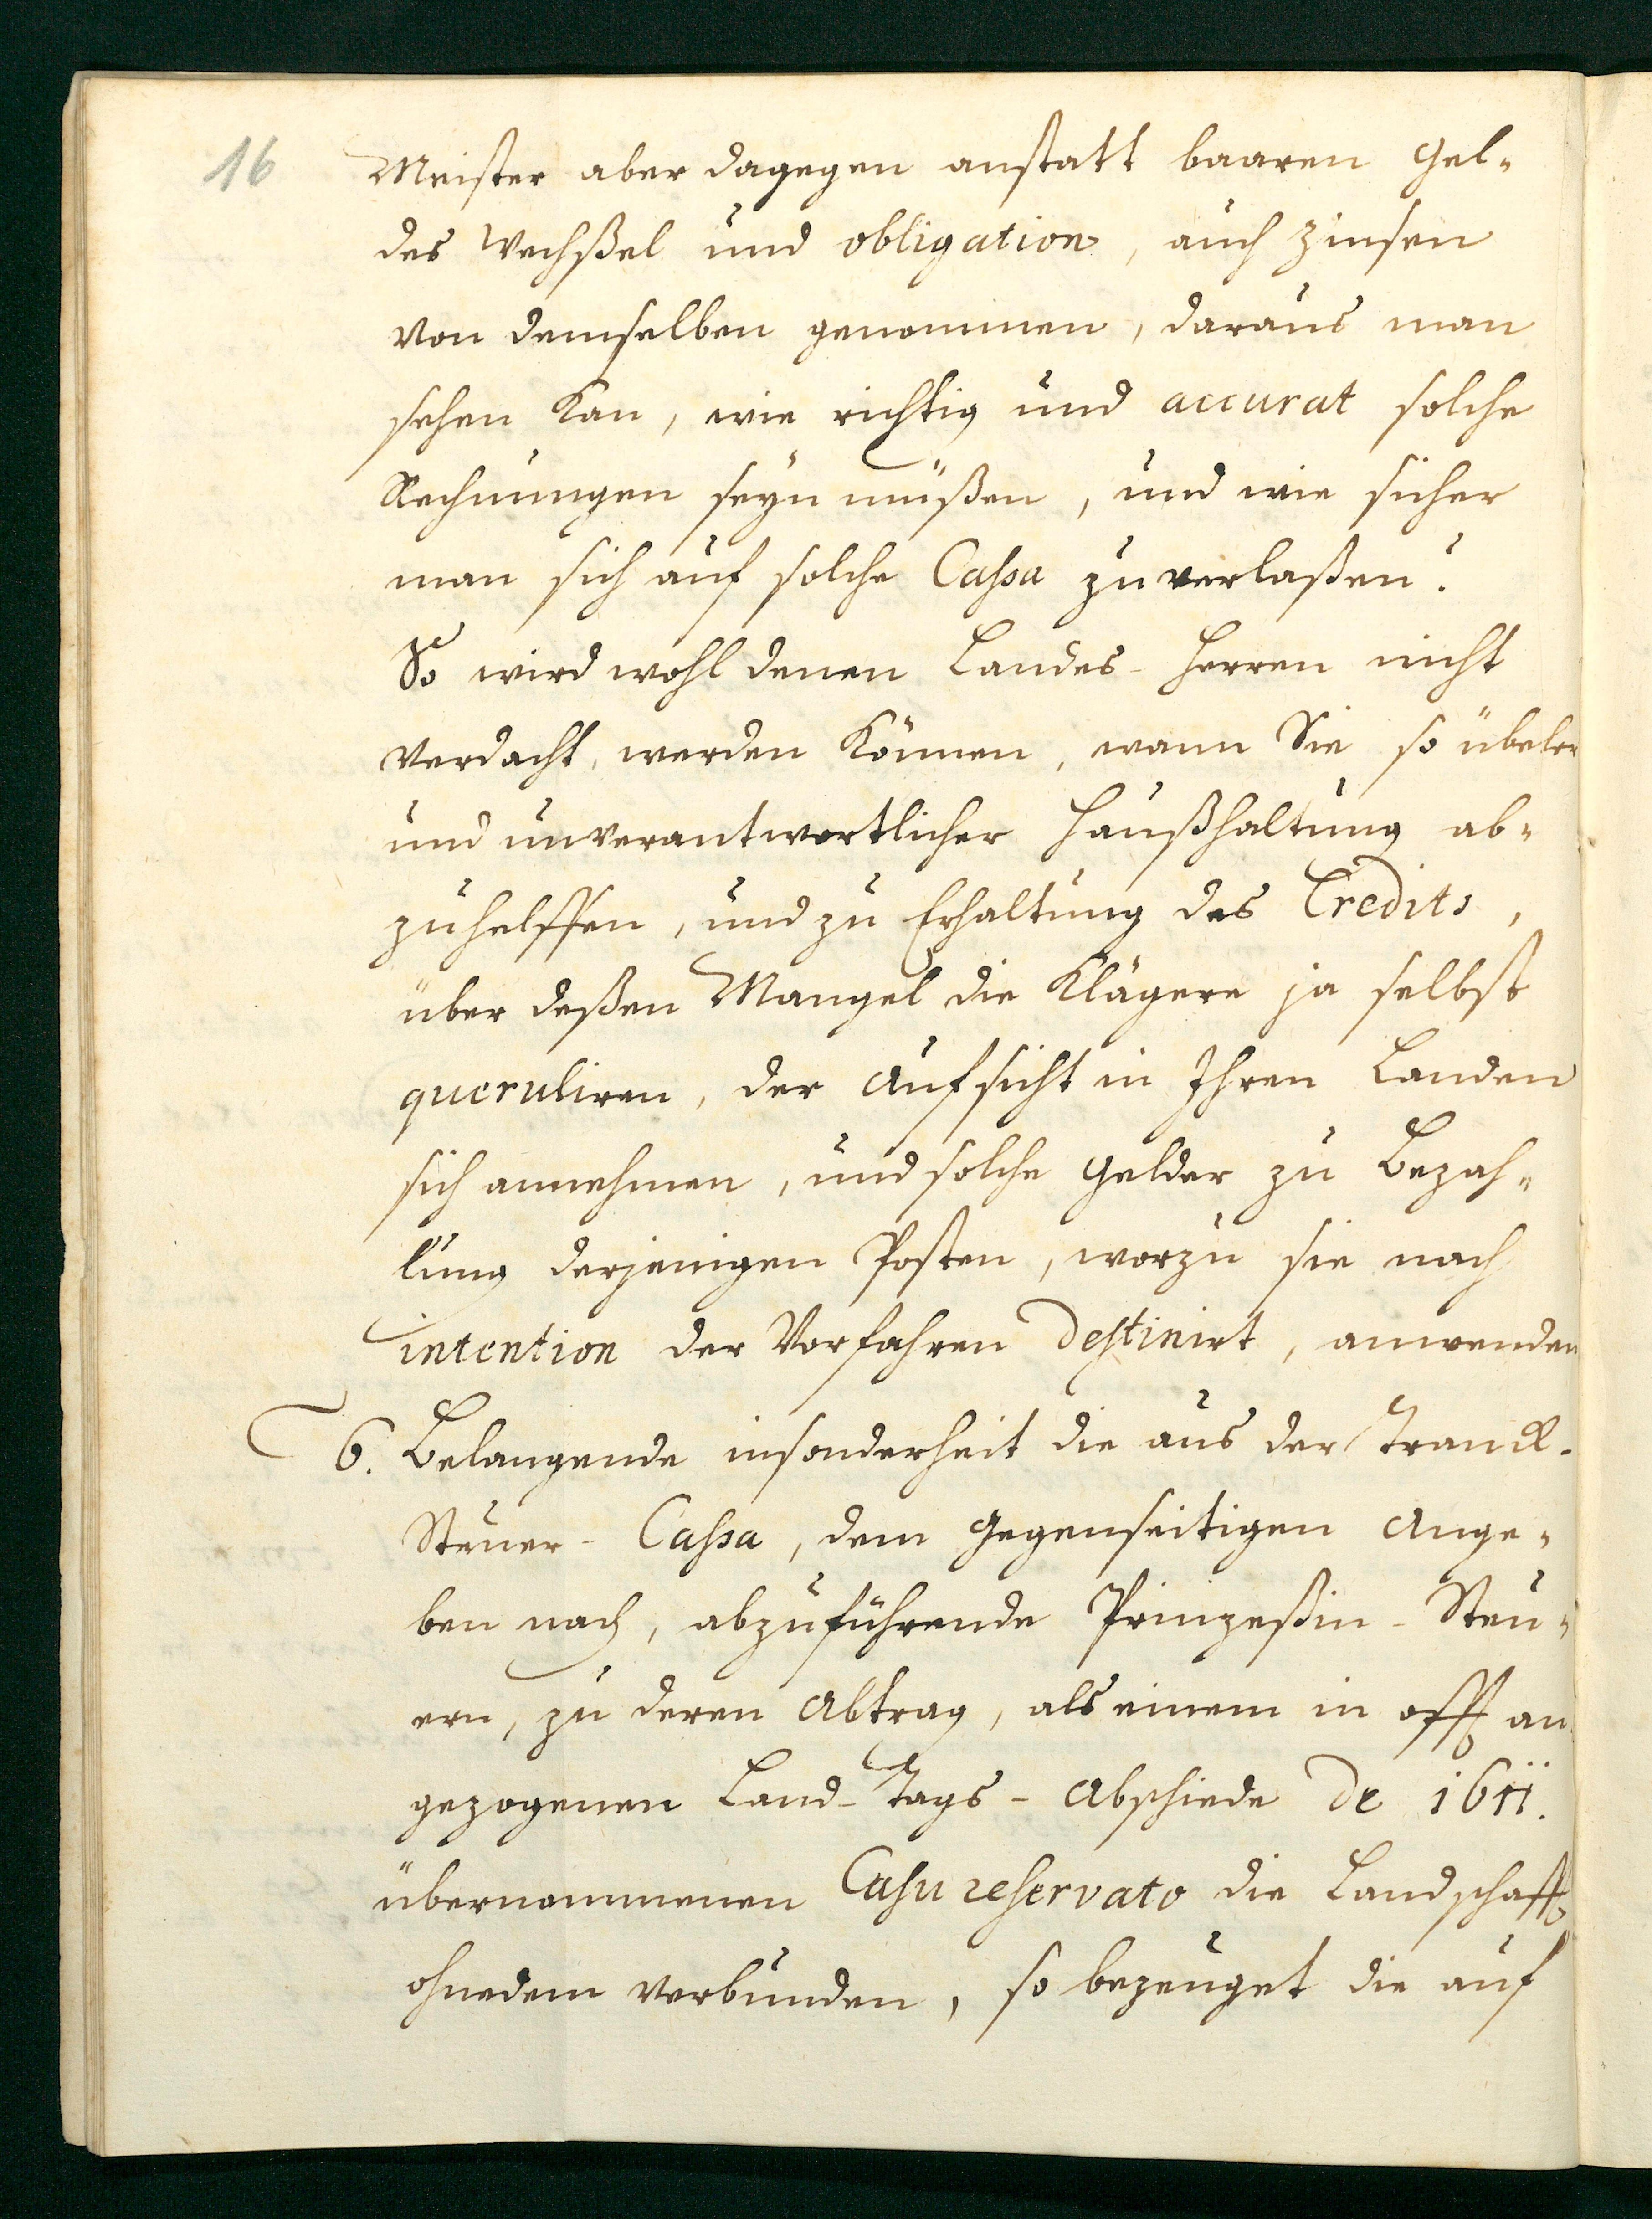 16
Meister aber dagegen anstatt baaren Gel-
des Wechßel und obligation, auch Zinsen
von demselben genommen, daraus man
sehen kan, wie richtig und accurat solche
Rechnungen seyn müßen, und wie sicher
man sich auf solche Cassa zu verlaßen?
So wird wohl denen Landes-Herren nicht
verdacht werden können, wann Sie so übeler
und unverantwortlicher Haußhaltung ab-
zuhelffen, und zu Erhaltung des Credits,
über deßen Mangel die Klägere ja selbst
queruliren, der Aufsicht in Ihren Landen
sich annehmen, und solche Gelder zu Bezah-
lung derjenigen Posten, worzu sie nach
intention der Vorfahren destinirt, anwenden
6. Belangende insonderheit die aus der Tranck-
Steuer-Cassa, dem gegenseitigen Ange-
ben nach, abzuführende Prinzeßin-Steu-
ern, zu deren Abtrag, als einem in offt an
gezogenen Land-Tags-Abschiede de 1611.
übernommenen Casu reservato die Landschafft
ohnedem verbunden, so bezeuget die auf